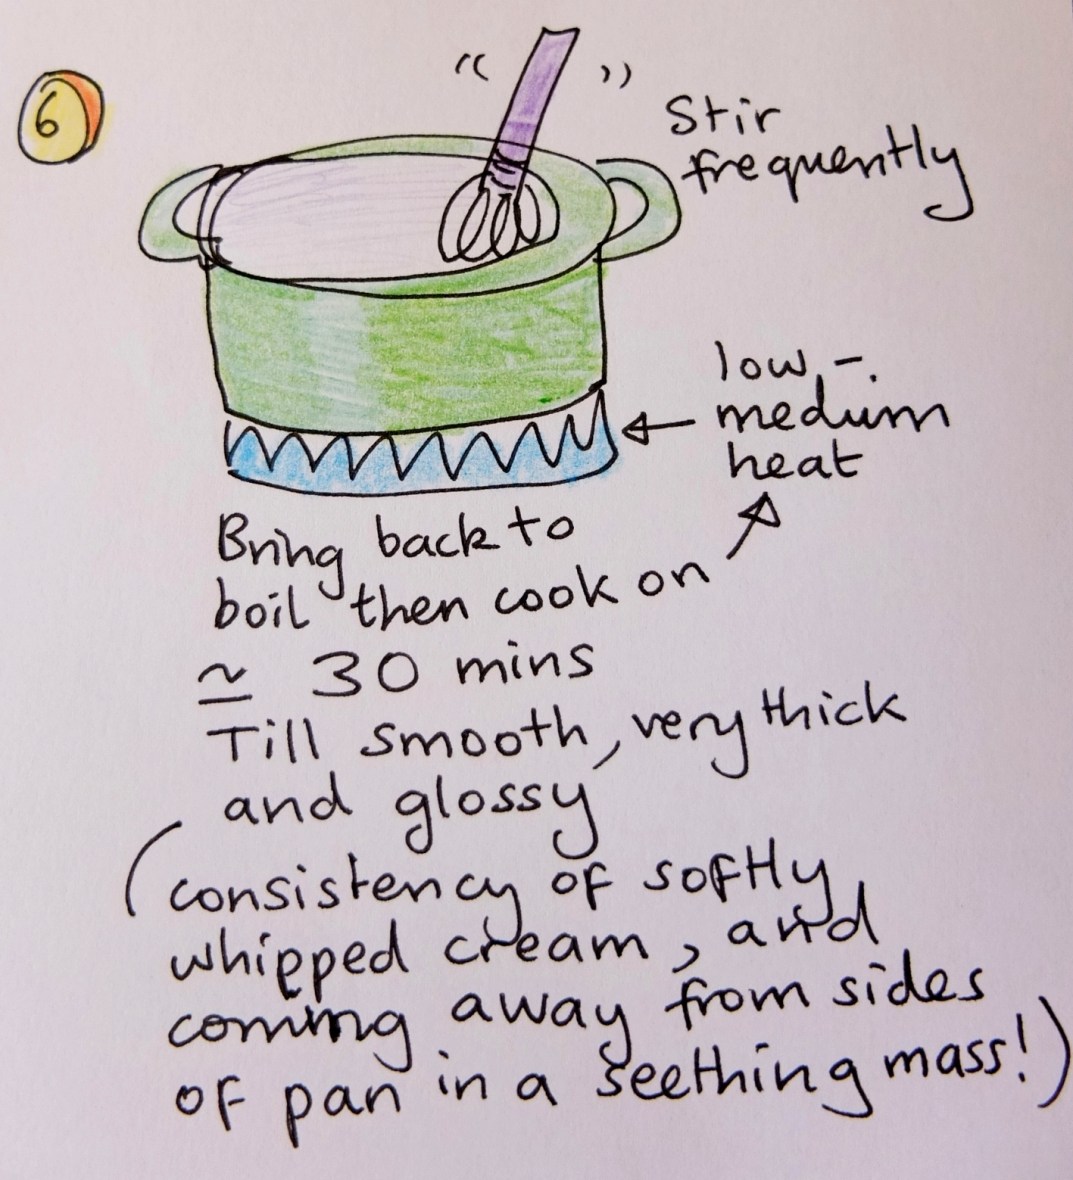 6
Stir
frequently
low -.
medium
heat
Bring back to
boil then cook on
≃ 30 mins
Till smooth, very thick
and glossy
(consistency of softly
whipped cream, and
coming away from sides
of pan in a seething mass!)